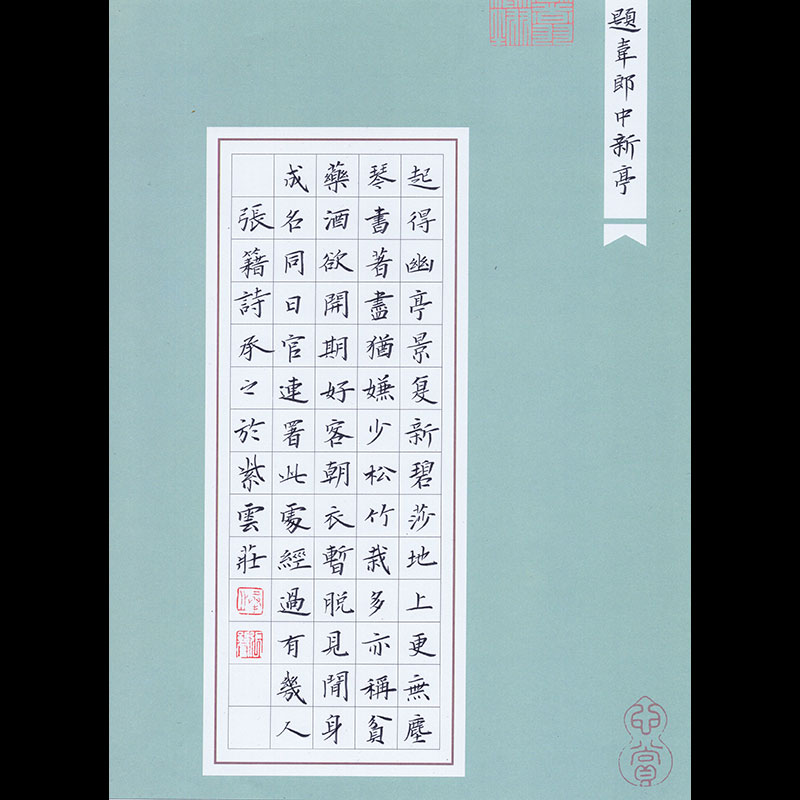 題韋郎中新亭
起得幽亭景复新碧莎地上更無塵
琴書著盡猶嫌少松竹栽多亦稱貧
藥酒欲開期好客朝衣暫脫見閒身
成名同日官連署此處經過有幾人
張籍詩承之於紫雲莊